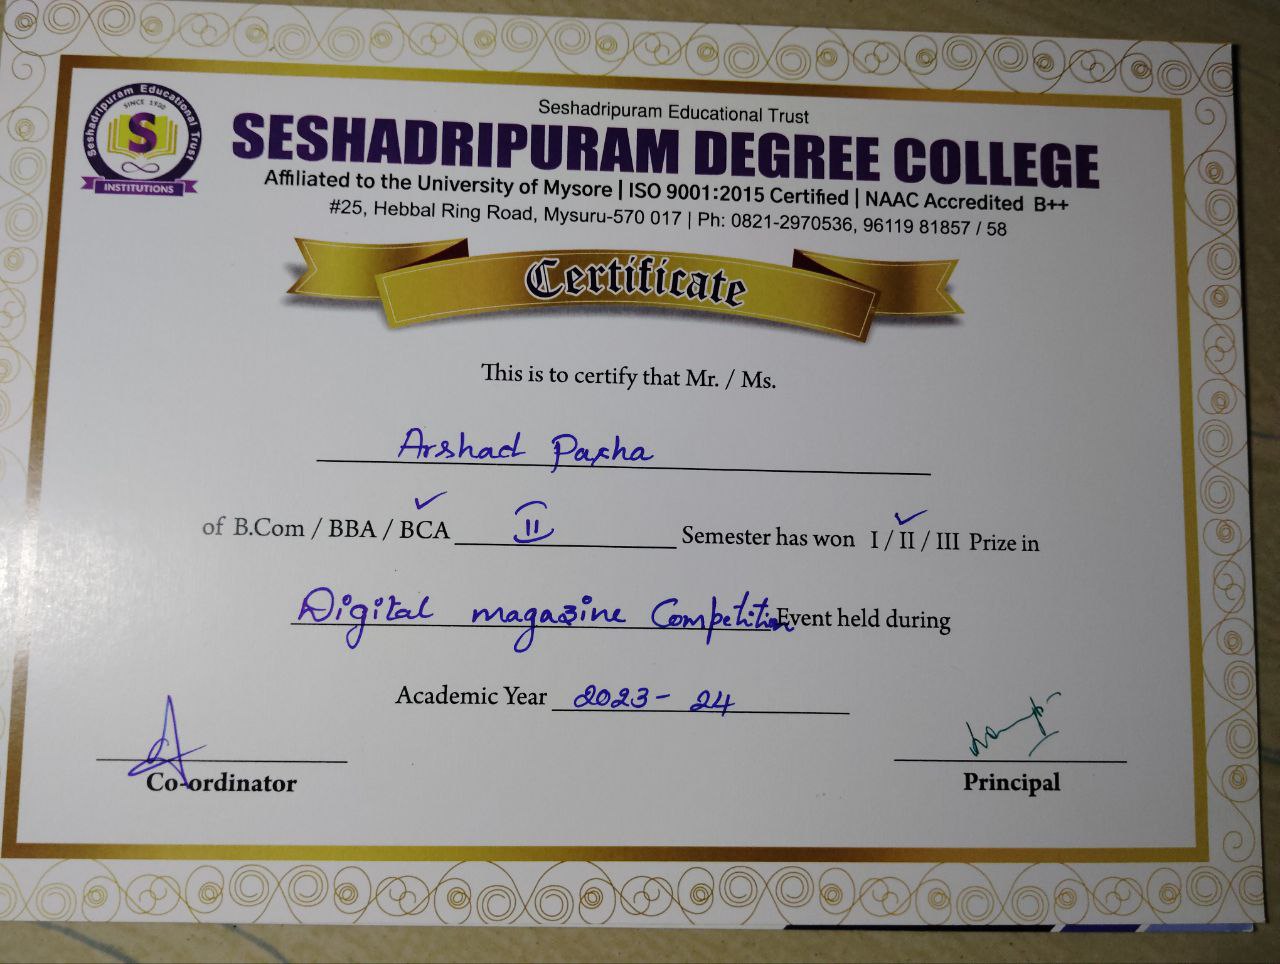 Seshadripuram Educational Trust
SINCE 1930
S
INSTITUTIONS
Seshadripuram Educational Trust
SESHADRIPURAM DEGREE COLLEGE
Affiliated to the University of Mysore | ISO 9001:2015 Certified | NAAC Accredited B++
#25, Hebbal Ring Road, Mysuru-570 017 | Ph: 0821-2970536, 96119 81857 / 58
Certificate
This is to certify that Mr. / Ms.
Arshad Pasha
of B.Com / BBA / BCA II Semester has won I / II / III Prize in
Digital magazine Competition Event held during
Academic Year 2023 - 24
Co-ordinator
Principal